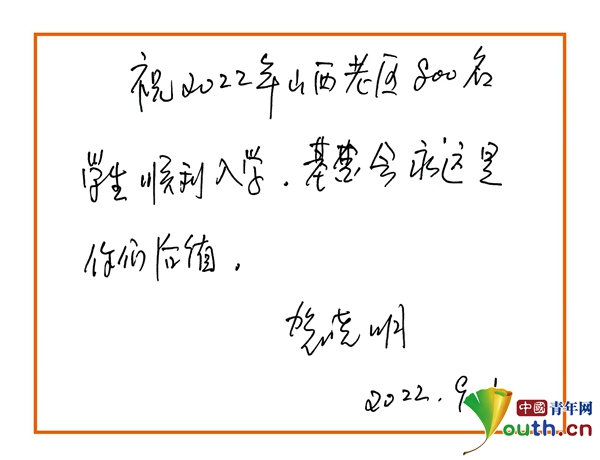 祝2022年山西老区800名
学生顺利入学。基金会永远是
你们后盾。
贺晓明
2022.9.1
中國青年网
Youth.cn